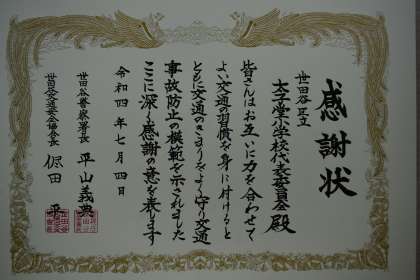 感謝状
世田谷区立
太子堂小学校代表委員会 殿
皆さんはお互いに力を合わせて
よい交通の習慣を身に付けると
ともに交通のきまりをよく守り交通
事故防止の模範を示されました
ここに深く感謝の意を表します
令和四年七月四日
世田谷警察署長 平山義典
世田谷交通安全協会長 田 平